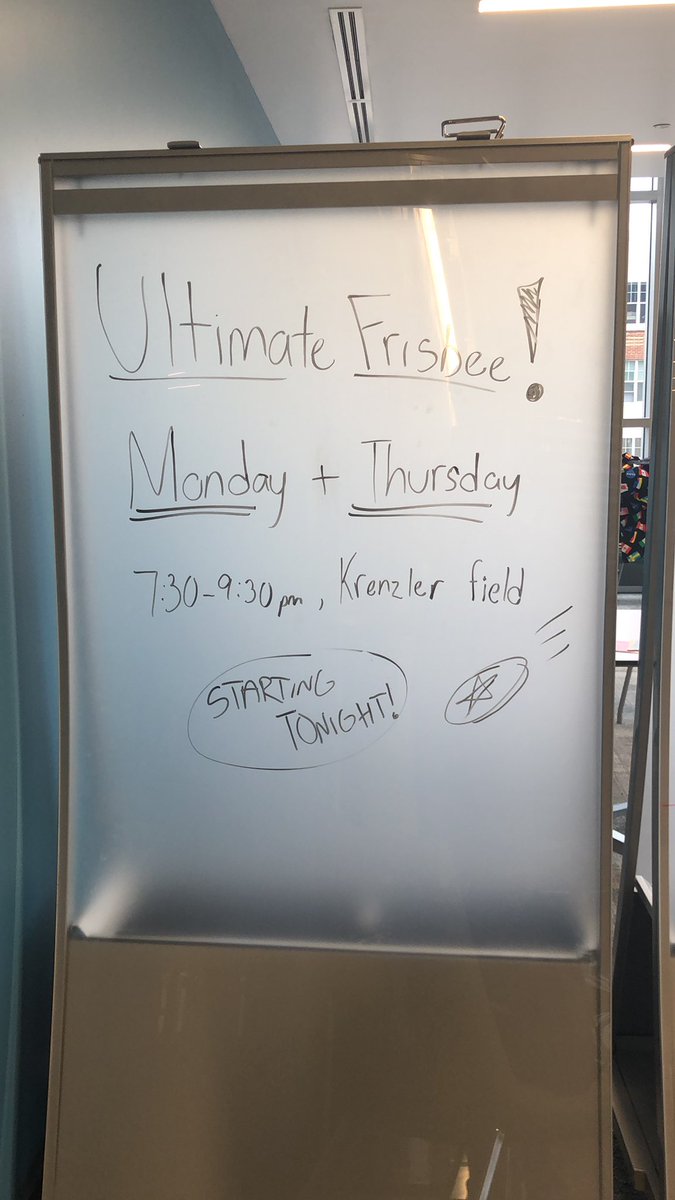 Ultimate Frisbee!
Monday + Thursday
7:30-9:30pm, Krenzler field
STARTING
TONIGHT!